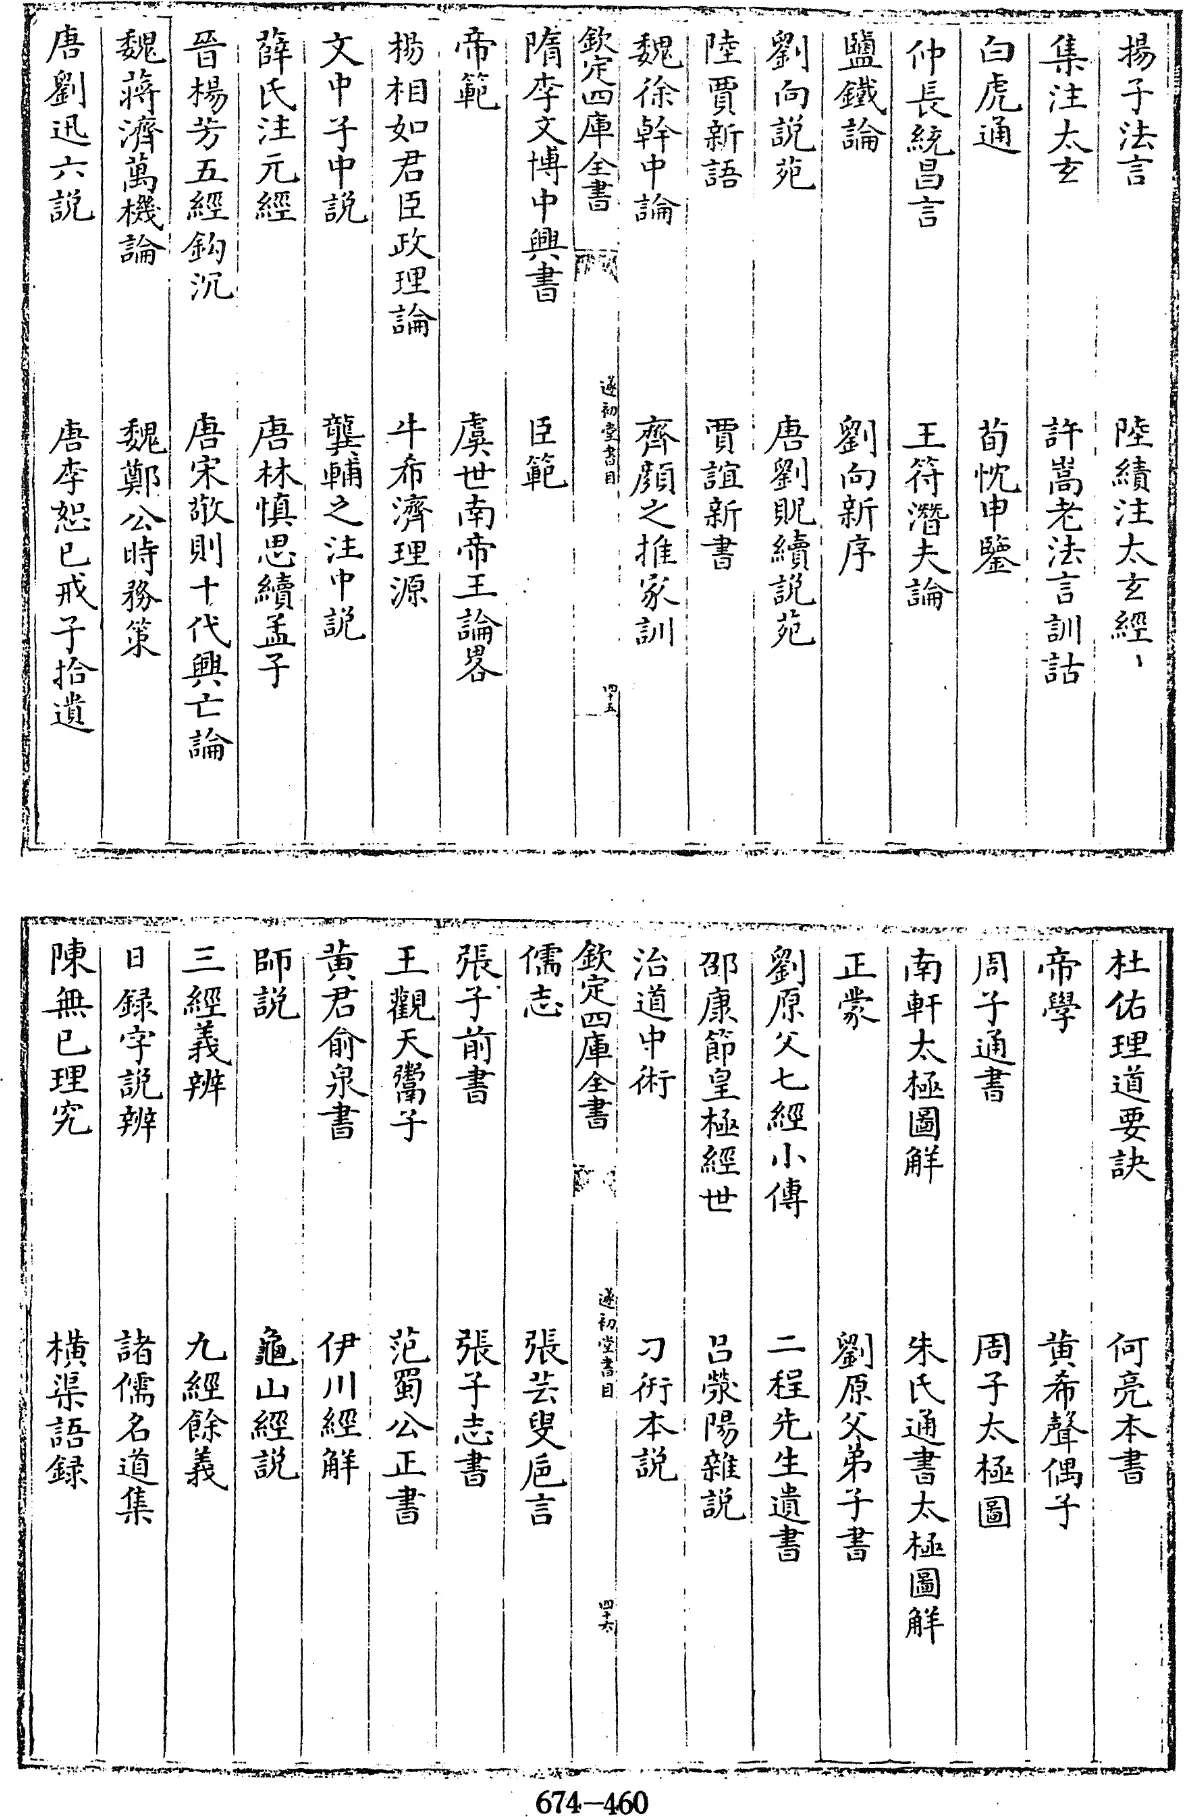 揚子法言 陸績注太玄經、
集注太玄 許嵩老法言訓詁
白虎通 荀悅申鑒
仲長統昌言 王符潛夫論
鹽鐵論 劉向新序
劉向説苑 唐劉貺續説苑
陸賈新語 賈誼新書
魏徐幹中論 齊顔之推家訓
欽定四庫全書 遂初堂書目 四十五
隋李文博中興書 臣範
帝範 虞世南帝王論畧
楊相如君臣政理論 牛希濟理源
文中子中説 龔輔之注中説
薛氏注元經 唐林慎思續孟子
晉楊芳五經鈎沉 唐宋敬則十代興亡論
魏蔣濟萬機論 魏鄭公時務策
唐劉迅六説 唐李恕已戒子拾遺
杜佑理道要訣 何亮本書
帝學 黄希聲偶子
周子通書 周子太極圖
南軒太極圖解 朱氏通書太極圖解
正蒙 劉原父弟子書
劉原父七經小傳 二程先生遺書
邵康節皇極經世 吕滎陽雜説
治道中術 刁衎本説
欽定四庫全書 遂初堂書目 四十六
儒志 張芸叟巵言
張子前書 張子志書
王觀天鬻子 范蜀公正書
黄君俞泉書 伊川經解
師説 龜山經説
三經義辨 九經餘義
日録字説辨 諸儒名道集
陳無已理究 橫渠語録
674-460